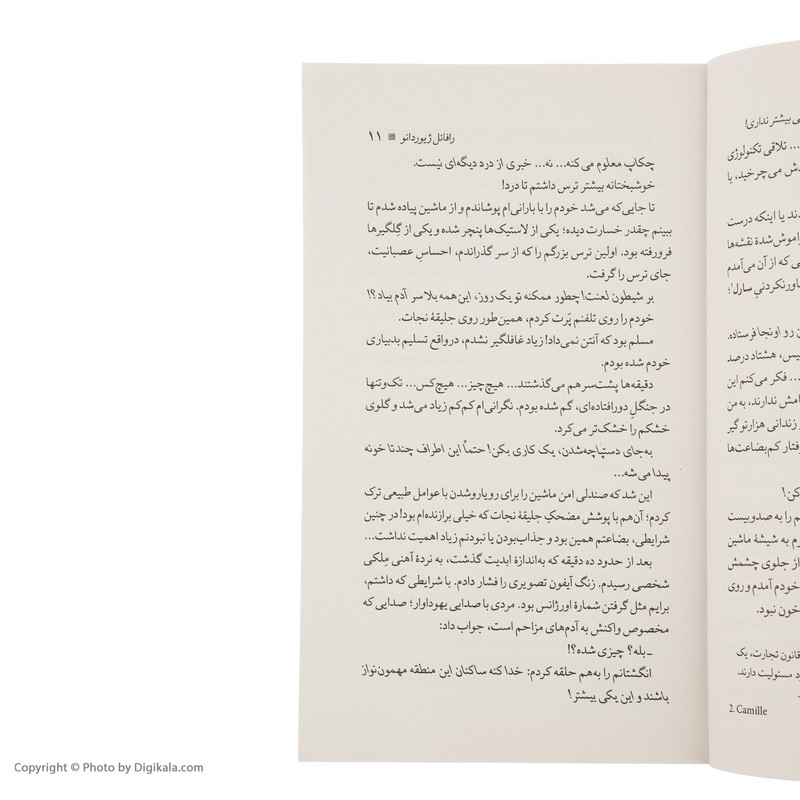 رافائل ژیوردانو ■ ۱۱
چکاپ معلوم می‌کنه... نه... خبری از درد دیگه‌ای نیست.
خوشبختانه بیشتر ترس داشتم تا درد!
تا جایی‌که می‌شد خودم را با بارانی‌ام پوشاندم و از ماشین پیاده شدم تا
ببینم چقدر خسارت دیده؛ یکی از لاستیک‌ها پنچر شده و یکی از گِلگیرها
فرورفته بود. اولین ترس بزرگم را که از سر گذراندم، احساسِ عصبانیت،
جای ترس را گرفت.
بر شیطون لعنت! چطور ممکنه تو یک روز، این‌همه بلا سر آدم بیاد؟!
خودم را روی تلفنم پَرت کردم، همین‌طور روی جلیقهٔ نجات.
مسلم بود که آنتن نمی‌داد! زیاد غافلگیر نشدم، درواقع تسلیم بدبیاری
خودم شده بودم.
دقیقه‌ها پشت‌سرهم می‌گذشتند... هیچ‌چیز... هیچ‌کس... تک‌وتنها
در جنگلِ دورافتاده‌ای، گم شده بودم. نگرانی‌ام کم‌کم زیاد می‌شد و گلوی
خشکم را خشک‌تر می‌کرد.
به‌جای دستپاچه‌شدن، یک کاری بکن! حتماً این اطراف چندتا خونه
پیدا می‌شه...
این شد که صندلی امن ماشین را برای رویاروشدن با عوامل طبیعی ترک
کردم؛ آن‌هم با پوشش مضحکِ جلیقهٔ نجات که خیلی برازنده‌ام بود! در چنین
شرایطی، بضاعتم همین بود و جذاب‌بودن یا نبودنم زیاد اهمیت نداشت...
بعد از حدود ده دقیقه که به‌اندازهٔ ابدیت گذشت، به نردهٔ آهنی مِلکی
شخصی رسیدم. زنگ آیفون تصویری را فشار دادم. با شرایطی که داشتم،
برایم مثل گرفتن شمارهٔ اورژانس بود. مردی با صدایی یهوداوار؛ صدایی که
مخصوص واکنش به آدم‌های مزاحم است، جواب داد:
ـ بله؟ چیزی شده؟!
انگشتانم را به‌هم حلقه کردم: خدا کنه ساکنان این منطقه مهمون‌نواز
باشند و این یکی بیشتر!
ی بیشتر نداری!
... تلاقی تکنولوژی
دش می‌چرخید، یا
دند یا اینکه درست
راموش‌شدهٔ نقشه‌ها
ی که از آن می‌آمدم
اورنکردنیِ سارل؛
ن رو اونجا فرستاده.
یس، هشتاد درصد
... فکر می‌کنم این
امش ندارند، به من
و زندانی هزارتو گیر
فتار کم‌بضاعت‌ها
کن!
م را به صدوبیست
رم به شیشهٔ ماشین
از جلوی چشمش
خودم آمدم و روی
خون نبود.
قانون تجارت، یک
د مسئولیت دارند.
2. Camille
Copyright © Photo by Digikala.com